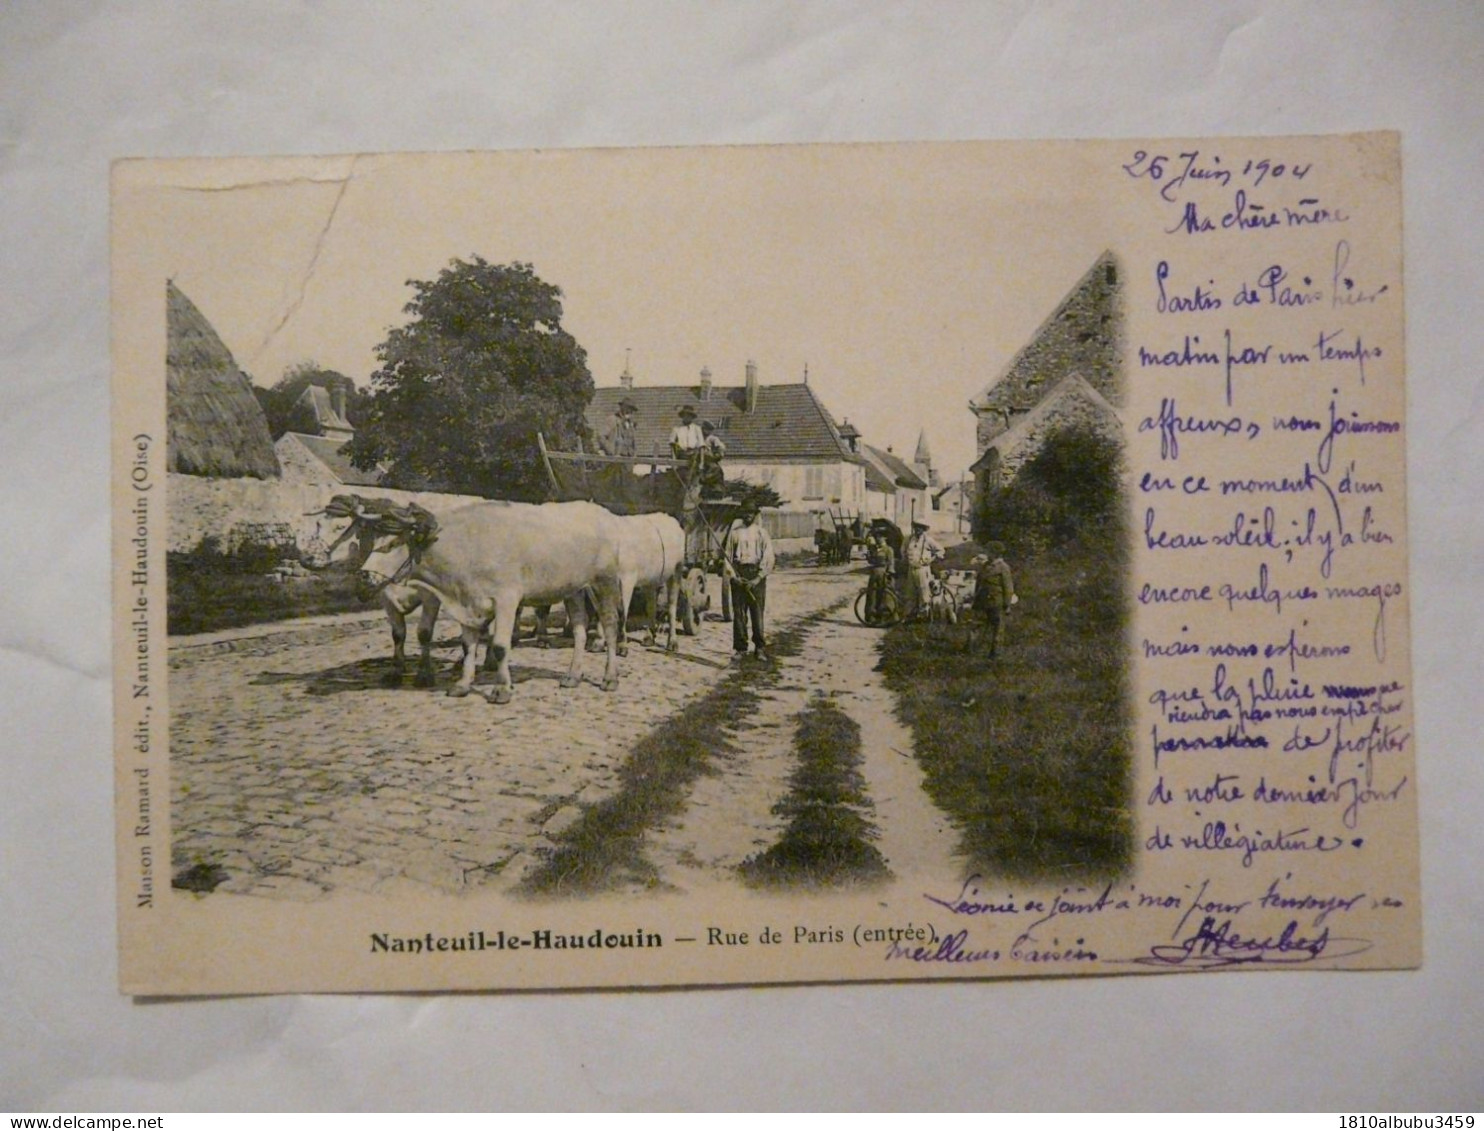 26 Juin 1904
Ma chère mère
Partis de Paris hier
matin par un temps
affreux, nous jouissons
en ce moment d'un
beau soleil; il y a bien
encore quelques nuages
mais nous espérons
que la pluie ne
viendra pas nous empêcher
de profiter
de notre dernier jour
de villégiature.
Léonie se joint à moi pour t'envoyer ses
meilleurs baisers
Maison Ramard édit., Nanteuil-le-Haudouin (Oise)
Nanteuil-le-Haudouin — Rue de Paris (entrée)
1810albubu3459